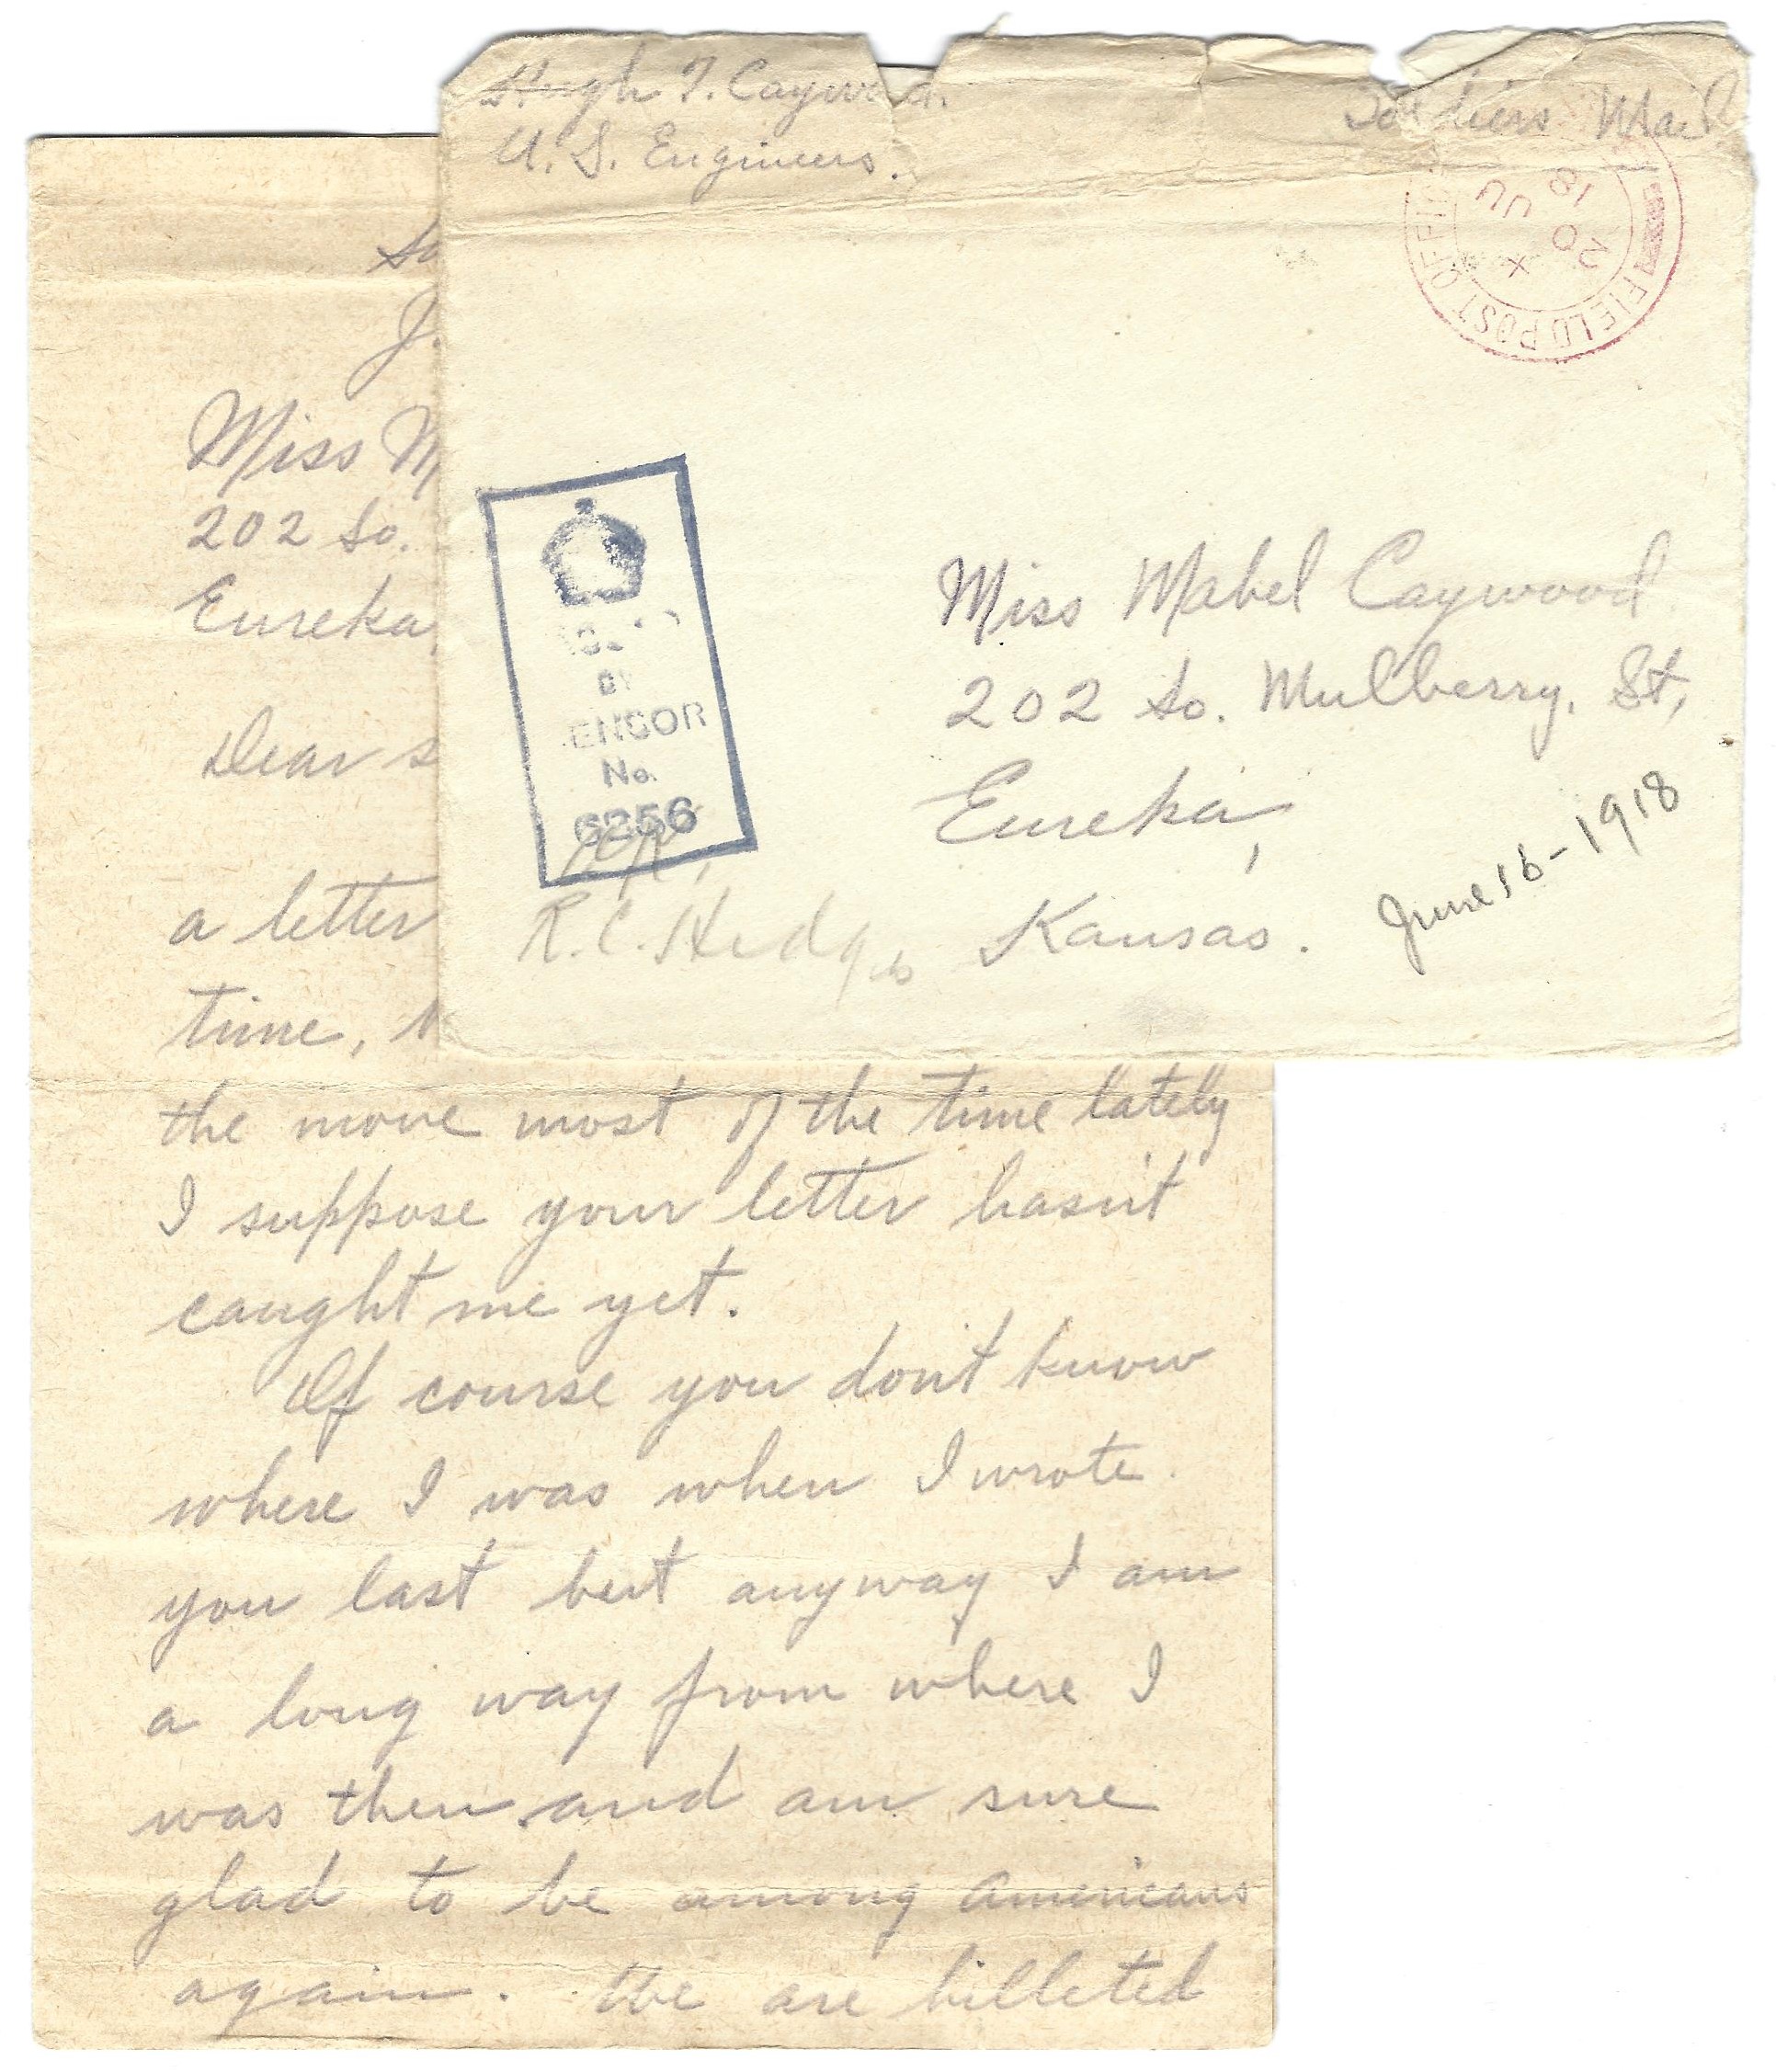 Hugh T. Caywood.
U. S. Engineers.
Soldiers Mail
FIELD POST OFFICE
X
20 JU
18
BY
CENSOR
No.
6256
R. C. Hedges
Miss Mabel Caywood
202 So. Mulberry. St,
Eureka,
Kansas.
June 16-1918
Miss M
202 So.
Eureka,
Dear s
a letter
time,
the move most of the time lately
I suppose your letter hasn't
caught me yet.
Of course you don't know
where I was when I wrote
you last but anyway I am
a long way from where I
was then and am sure
glad to be among Americans
again. We are billeted